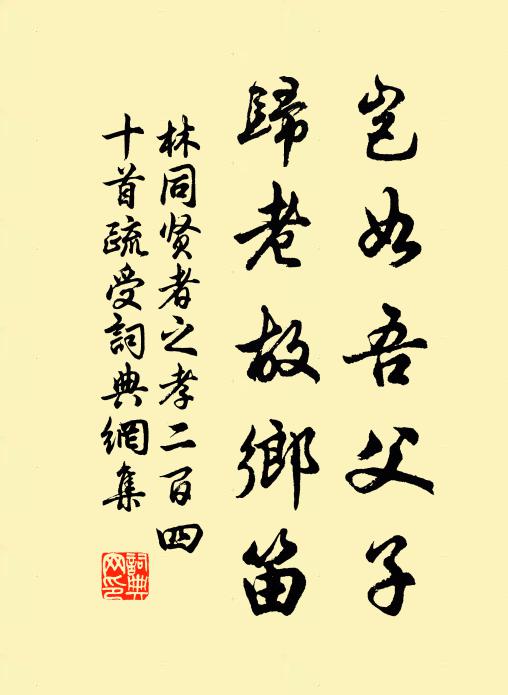 豈如吾父子
歸老故鄉笛
林同贤者之孝二百四
十首疏受詞典網集
詞典网印